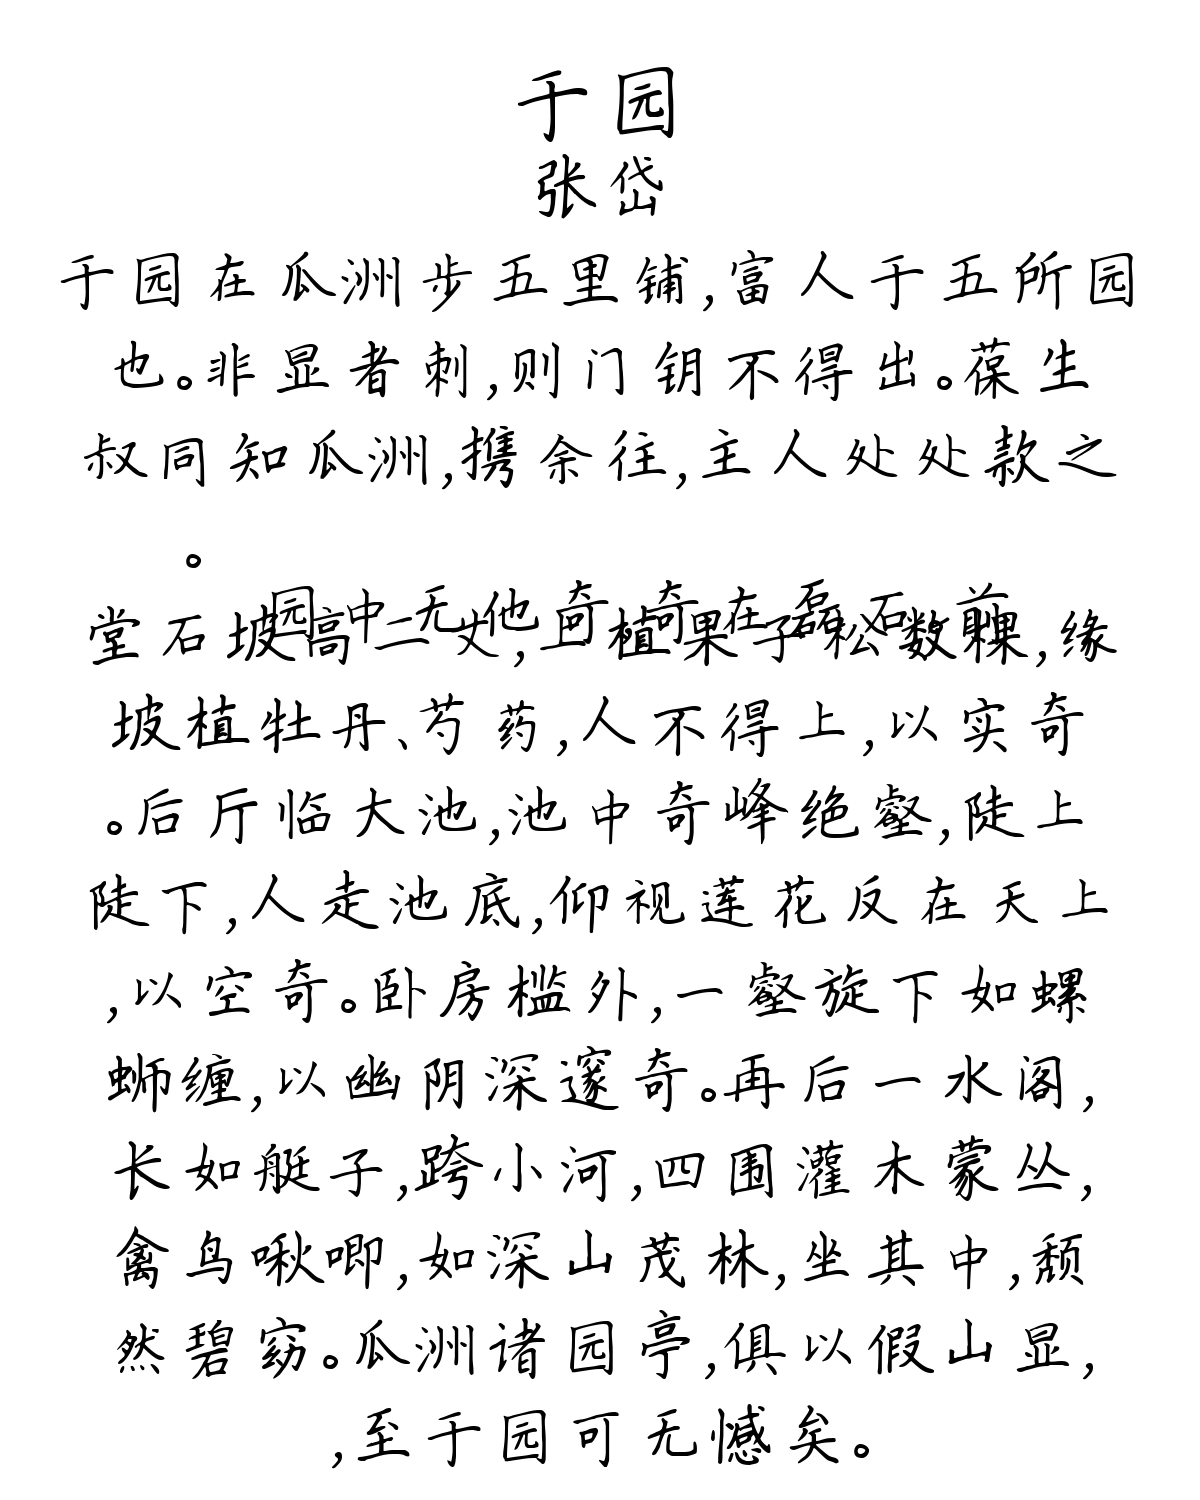 于园
张岱
于园在瓜洲步五里铺,富人于五所园
也。非显者刺,则门钥不得出。葆生
叔同知瓜洲,携余往,主人处处款之
。
园中无他奇,奇在磊石。前
堂石坡高二丈,上植果子松数棵,缘
坡植牡丹、芍药,人不得上,以实奇
。后厅临大池,池中奇峰绝壑,陡上
陡下,人走池底,仰视莲花反在天上
,以空奇。卧房槛外,一壑旋下如螺
蛳缠,以幽阴深邃奇。再后一水阁,
长如艇子,跨小河,四围灌木蒙丛,
禽鸟啾唧,如深山茂林,坐其中,颓
然碧窈。瓜洲诸园亭,俱以假山显,
,至于园可无憾矣。